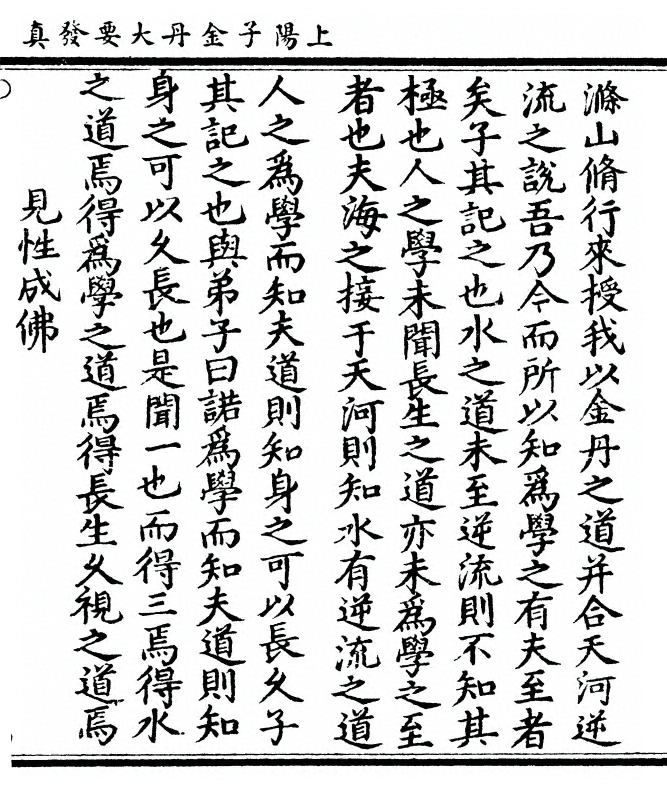 上陽子金丹大要發真
滌山脩行來授我以金丹之道并合天河逆
流之說吾乃今而所以知爲學之有夫至者
矣子其記之也水之道未至逆流則不知其
極也人之學未聞長生之道亦未爲學之至
者也夫海之接于天河則知水有逆流之道
人之爲學而知夫道則知身之可以長久子
其記之也與弟子曰諾爲學而知夫道則知
身之可以久長也是聞一也而得三焉得水
之道焉得爲學之道焉得長生久視之道焉
見性成佛